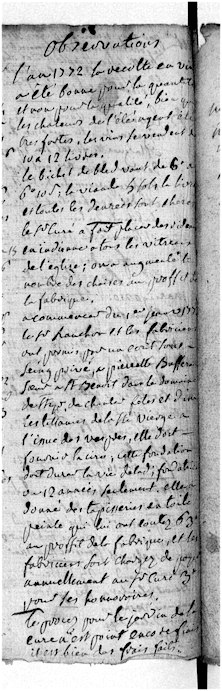 Observations
L'an 1772 la recolte en vin
a esté bonne pour la quantité
et non pour la qualité, bien que
les chaleurs de l'été ayent été
tres fortes, les vins se vendent de
10 a 12 livres.
le bichet de bled vaut de 6# a
6# 10s; la viande 5 sols la livre
et toutes les denrées sont cheres
le sr Curé a fait placer des
en a tous les vitreaux
de l'eglise; on a augmenté le
nombre des chaises au proffit de
la fabrique.
a commencer du 1er janv 1772
le sr et les fabriciens
ont permis, par un écrit sous
seing privé, a pierrette
dans le domaine
de de chanter
les litanies de la Ste Vierge a
l'issue des vespres, elle doit
fournir la cire; cette fondation
doit durer la vie de la de fondatrice
ou 12 années seulement, elle a
donné des tapisseries en toile
peinte qui lui ont couté 63#
au proffit de la fabrique, et les
fabriciens sont chargez de payer
annuellement au sr Curé 3#
pour ses honnoraires.
le procez pour le jardin de la
cure n'est point encore fini
il est bien des frais faits.